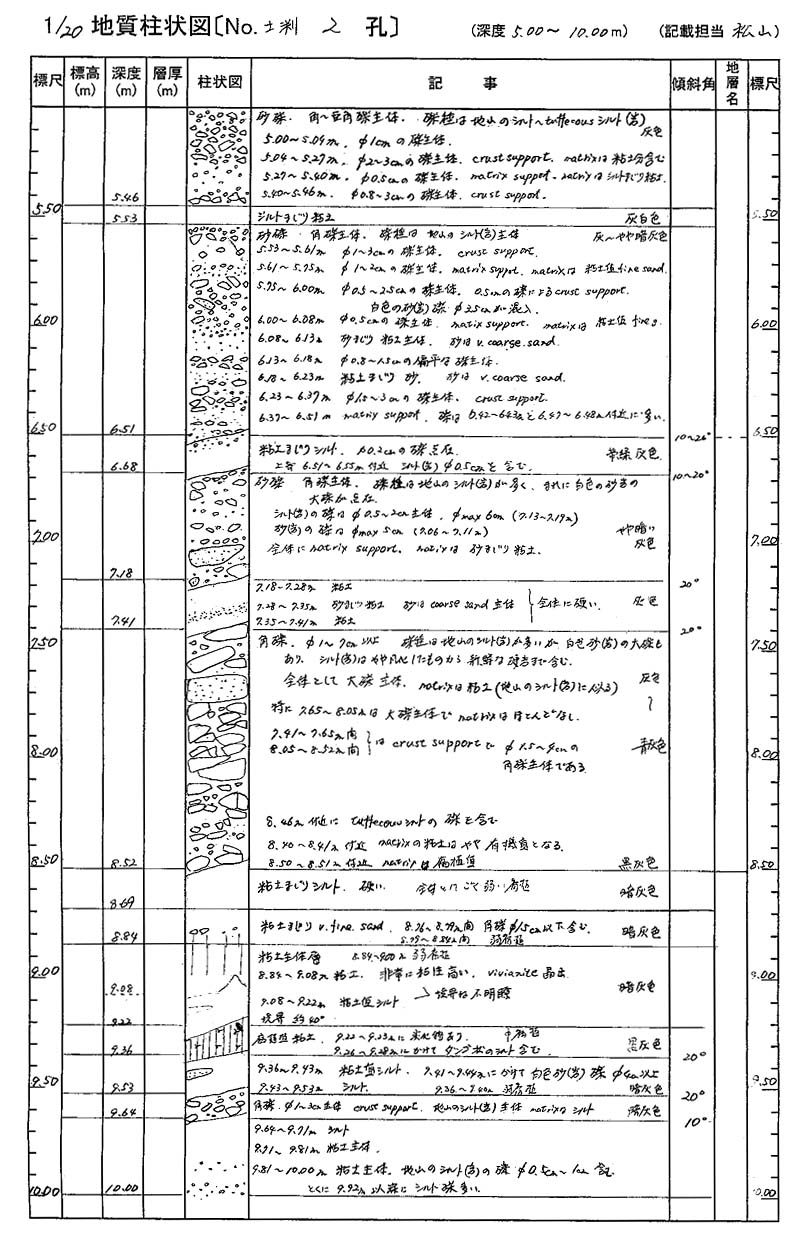 1/20 地質柱状図〔No. 土判 2 孔〕 (深度 5.00〜10.00m) (記載担当 松山)
標尺 標高(m) 深度(m) 層厚(m) 柱状図 記事 傾斜角 地層名 標尺
砂礫. 角〜亜角礫主体. 礫種は地山のシルト〜tuffecousシルト(岩) 灰色
5.00〜5.04m, φ1cmの礫主体.
5.04〜5.27m, φ2〜3cmの礫主体. crust support. matrixは粘土分含む
5.27〜5.40m, φ0.5cmの礫主体. matrix support. matrixはシルトまじり粘土.
5.46 5.40〜5.46m. φ0.8〜3cmの礫主体. crust support.
5.50 5.50
5.53 シルトまじり粘土 灰白色
砂礫 角礫主体. 礫種は地山のシルト(岩)主体 灰〜やや暗灰色
5.53〜5.61m φ1〜3cmの礫主体. crust support.
5.61〜5.75m φ1〜2cmの礫主体. matrix supprt. matrixは粘土質fine sand.
5.75〜6.00m φ0.5〜2.5cmの礫主体. 0.5cmの礫によるcrust support.
白色の砂(岩)礫 φ3.5cmが混入.
6.00 6.00〜6.08m φ0.5cmの礫主体. matrix support. matrixは粘土質 fine s. 6.00
6.08〜6.13m 砂まじり粘土主体. 砂はv.coarse.sand.
6.13〜6.18m φ0.8〜1.5cmの扁平な礫主体.
6.18〜6.23m 粘土まじり砂. 砂はv.coarse sand.
6.23〜6.37m φ1.5〜3cmの礫主体. crust support.
6.37〜6.51m matrix support. 礫は6.42〜6.43mと6.47〜6.48m付近に多い.
6.50 6.51 10〜20° 6.50
粘土まじりシルト. φ0.2cmの礫点在. 灰色
6.68 上部 6.51〜6.55m付近 シルト(岩) φ0.5cmを含む. 10〜20°
砂礫 角礫主体. 礫種は地山のシルト(岩)が多く, まれに白色の砂岩の
大礫が点在.
シルト(岩)の礫はφ0.5〜2cm主体, φmax 6cm (7.13〜7.19m)
砂(岩)の礫はφmax 5cm (7.06〜7.11m) やや暗い灰色
7.00 全体にmatrix support. matrixは砂まじり粘土. 7.00
7.18 20°
7.18〜7.28m 粘土
7.28〜7.35m 砂まじり粘土 砂はcoarse sand主体 全体に硬い. 灰色
7.41 7.35〜7.41m 粘土 20°
7.50 角礫. φ1〜7cm以上 礫種は地山のシルト(岩)が多いが白色砂(岩)の大礫も 7.50
あり. シルト(岩)はやや風化したものから新鮮な硬岩まで含む.
全体として大礫主体. matrixは粘土(地山のシルト(岩)に似る) 灰色
特に7.65〜8.05mは大礫主体でmatrixはほとんどなし. 〜
7.41〜7.65m間
8.00 8.05〜8.52m間 はcrust supportでφ1.5〜4cmの 青灰色 8.00
角礫主体である
8.46m付近にtuffecousシルトの礫を含む
8.40〜8.41m付近 matrixの粘土はやや有機質となる.
8.50 8.52 8.50〜8.51m付近 matrixは腐植質 黒灰色 8.50
粘土まじりシルト. 硬い. 全体にごく弱い腐植 暗灰色
8.69
粘土まじりv.fine.sand. 8.76〜8.79m間 角礫φ1.5cm以下含む. 暗灰色
8.84 8.79〜8.84m間 弱腐植
粘土主体層 8.84〜9.00m 弱腐植
9.00 8.84〜9.08m粘土. 非常に粘性高い. vivianite晶出 暗灰色 9.00
9.08 9.08〜9.22m 粘土質シルト →境界は不明瞭
9.22 境界約40°
腐植質粘土. 9.22〜9.23mに炭化物あり. 黒灰色
9.36 9.26〜9.28mにかけてタンブ状のシルト含む. 20°
9.36〜9.43m 粘土質シルト. 9.41〜9.44mにかけて白色砂(岩)礫φ4cm以上
9.50 9.53 9.43〜9.53m シルト. 9.36〜9.40m 弱腐植 暗灰色 20° 9.50
9.64 角礫. φ1〜3cm主体 crust support. 地山のシルト(岩)主体 matrixはシルト 暗灰色 10°
9.64〜9.71m シルト
9.71〜9.81m 粘土主体.
9.81〜10.00m 粘土主体. 地山のシルト(岩)の礫φ0.5cm〜1cm含む
10.00 10.00 とくに9.92m以深にシルト礫多い. 10.00